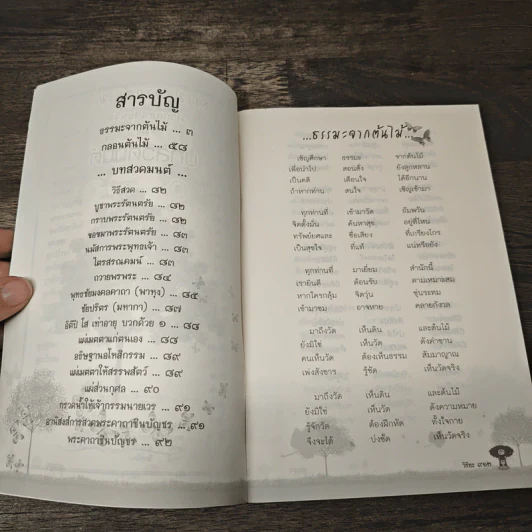 สารบัญ
ธรรมะจากต้นไม้ ... ๓
กลอนต้นไม้ ... ๕๘
... บทสวดมนต์ ...
วิธีสวด ... ๘๒
บูชาพระรัตนตรัย ... ๘๒
กราบพระรัตนตรัย ... ๘๒
ขอขมาพระรัตนตรัย ... ๘๓
นมัสการพระพุทธเจ้า ... ๘๓
ไตรสรณคมน์ ... ๘๓
ถวายพรพระ ... ๘๔
พุทธชัยมงคลคาถา (พาหุง) ... ๘๕
ชัยปริตร (มหากา) ... ๘๗
อิติปิ โส เท่าอายุ บวกด้วย ๑ ... ๘๘
แผ่เมตตาแก่ตนเอง ... ๘๘
อธิษฐานอโหสิกรรม ... ๘๙
แผ่เมตตาให้สรรพสัตว์ ... ๘๙
แผ่ส่วนกุศล ... ๙๐
กรวดน้ำให้เจ้ากรรมนายเวร ... ๙๑
อานิสงส์การสวดพระคาถาชินบัญชร ... ๙๑
พระคาถาชินบัญชร ... ๙๒
...ธรรมะจากต้นไม้...
เชิญศึกษา ธรรมะ จากต้นไม้
เพื่อนำไป สอนสั่ง ยังลูกหลาน
เป็นคติ เตือนใจ ได้อีกนาน
ถ้าหากท่าน สนใจ เชิญเข้ามา
ทุกท่านที่ เข้ามาวัด
จิตตั้งมั่น ค้นหาสุข อยู่ที่ไหน
ทรัพย์ยศและ ชื่อเสียง ที่เกรียงไกร
เป็นสุขใจ ที่แท้ แน่หรือยัง
ทุกท่านที่ มาเยี่ยม สำนักนี้
เรายินดี ต้อนรับ ตามเหมาะสม
หากใครกลุ้ม จิตวุ่น ขุ่นระทม
เข้ามาชม อาจหาย คลายกังวล
มาถึงวัด เห็นดิน และต้นไม้
ยังมิใช่ เห็นวัด ดังคำขาน
คนเห็นวัด ต้องเห็นธรรม
เพ่งสังขาร รู้ชัด เห็นวัดจริง
มาถึงวัด เห็นดิน และต้นไม้
ยังมิใช่ เห็นวัด ดังความหมาย
รู้จักวัด ต้องฝึกหัด ทั้งใจกาย
จึงจะได้ บ่งชัด เห็นวัดจริง